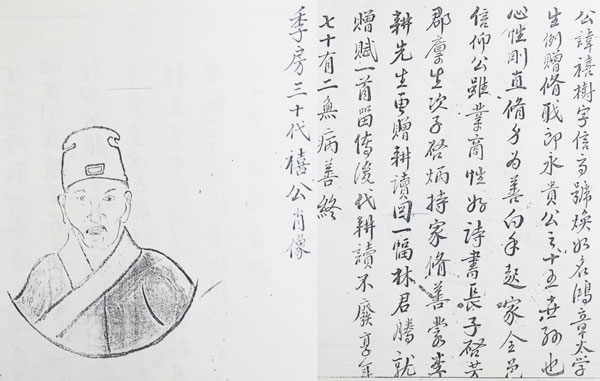 公諱禧樹字信高號煥如名鴻章太学
生例贈脩职郎永貴公之十五世孙也
心性剛直脩身为善白手起家全邑
信仰公雖業商性好詩書長子啓
郡廩生次子啓炳持家脩善蒙業
耕先生更贈耕讀図一幅林君騰就
贈赋一首畱傳後代耕讀不廢享年
七十有二無病善終
季房三十代禧公肖像